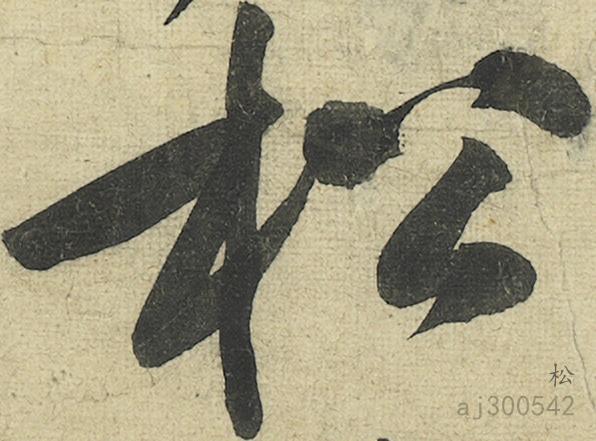 松
松
aj300542